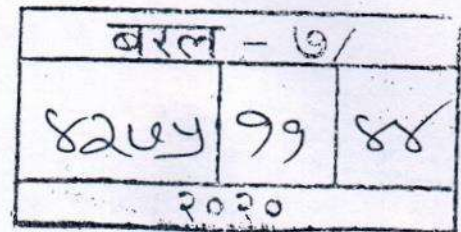 बरल - ७/
४२७५ ११ ४४
२०२०